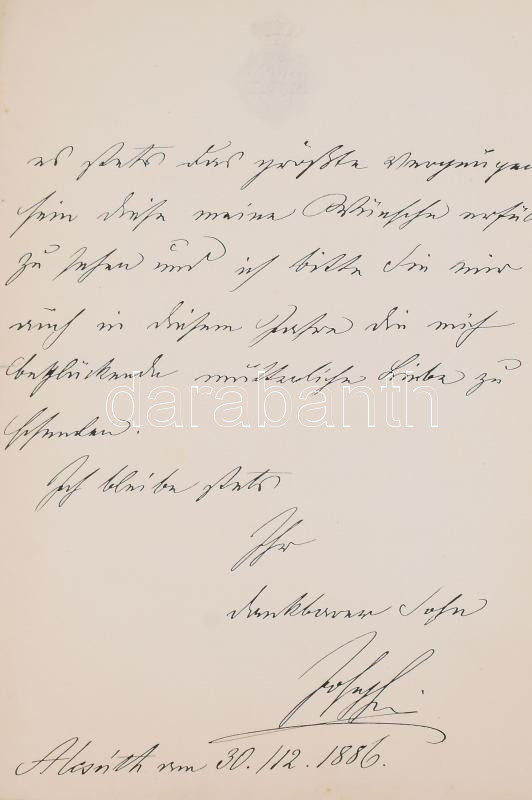 es stets das größte Vergnügen
sein diese meine Wünsche erfül
zu sehen und ich bitte Sie mir
auch in diesem Jahre die mich
beglückende mütterliche Liebe zu
schenken.
Ich bleibe stets
Ihr
dankbarer Sohn
Joseph
Alcsúth am 30./12. 1886.
darabanth